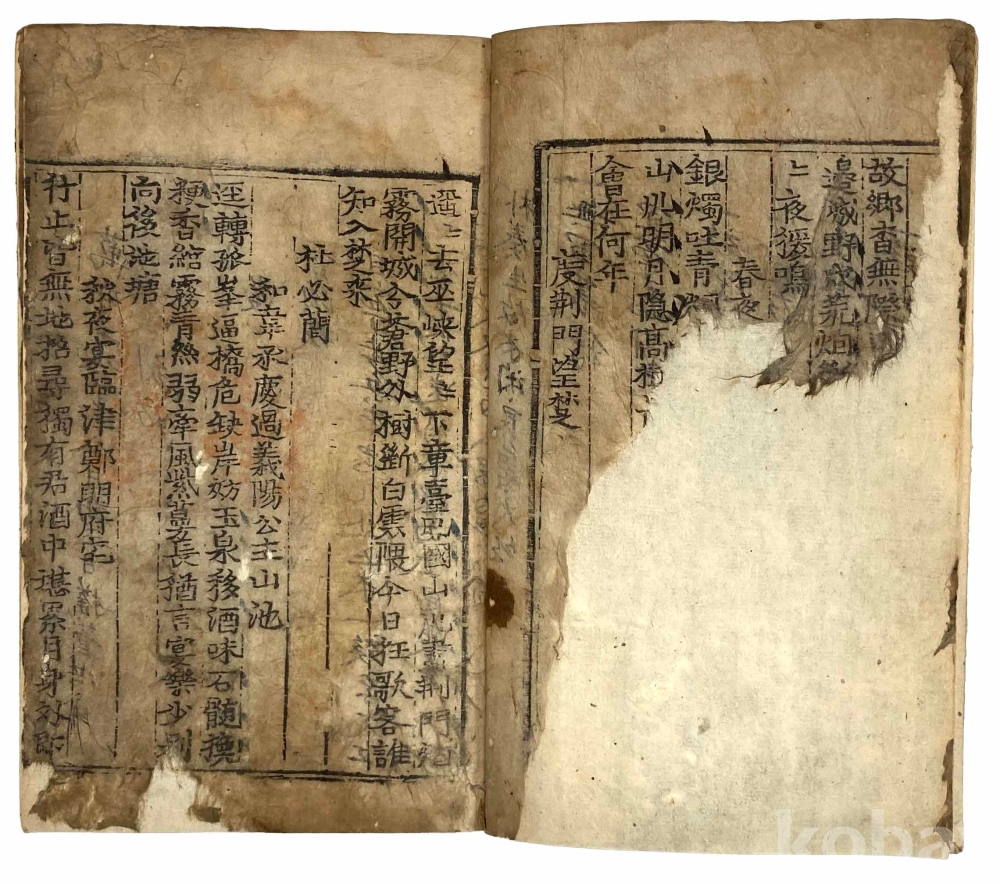 故鄉杳無際
邊城野戍荒烟
〻夜猿鳴
春夜
銀燭吐青
山川明月隐髙樹
會在何年
度荆門望楚
遥〻去巫峽望〻下章臺巴國山川盡荆門烟
霧開城分蒼野外樹断白雲隈今日狂歌客誰
知入楚來
杜必簡
和韋承慶過義陽公主山池
逕轉孤峯逼橋危缺岸妨玉泉移酒味石髓換
粳香綰霧青絲弱牽風紫蔓長猶言宴樂少別
向後池塘
秋夜宴臨津鄭明府宅
行止皆無地招尋獨有君酒中堪累日身外即
koba